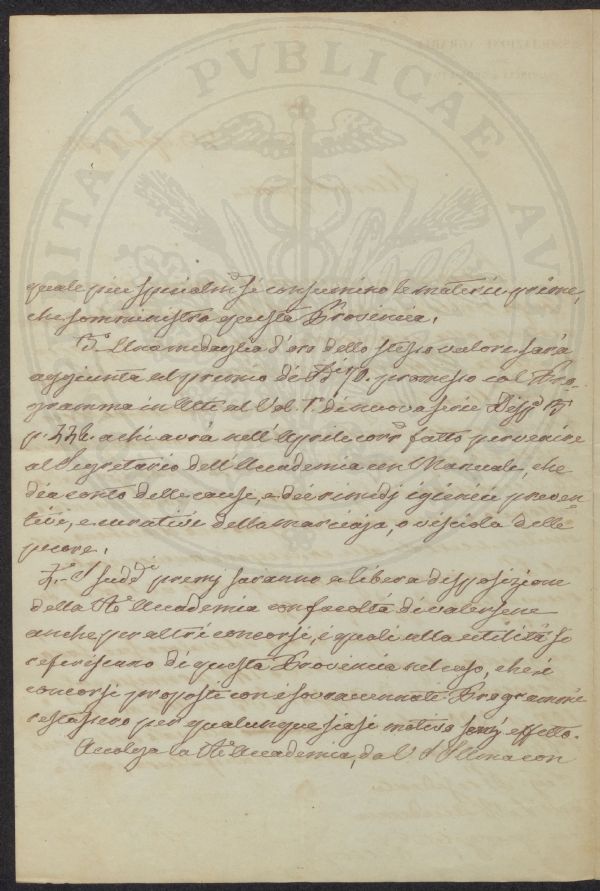 PVBLICAE
quale più specialmte si consumino le materie prime,
che somministra questa Provincia.
3.° Una medaglia d'oro dello stesso valore sarà
aggiunta al premio di promesso col Pro-
gramma in Atti al Vol. 1.° di nuova serie Disp.
p. a chi avrà nell'Aprile corr.e fatto pervenire
al Segretario dell'Accademia un Manuale, che
dia conto delle cause, e dei rimedj igienici preven-
tivi, e curativi della marciaja, o visciola delle
pecore.
4.° I sudd.i premj saranno a libera disposizione
della R.a Accademia con facoltà di valersene
anche per altri concorsi, i quali alla utilità si
riferiscano di questa Provincia nel caso, che i
concorsi proposti con i sovracennati Programmi
restassero per qualunque siasi motivo senz'effetto.
Accolga la R.a Accademia, da V. S. Illma con